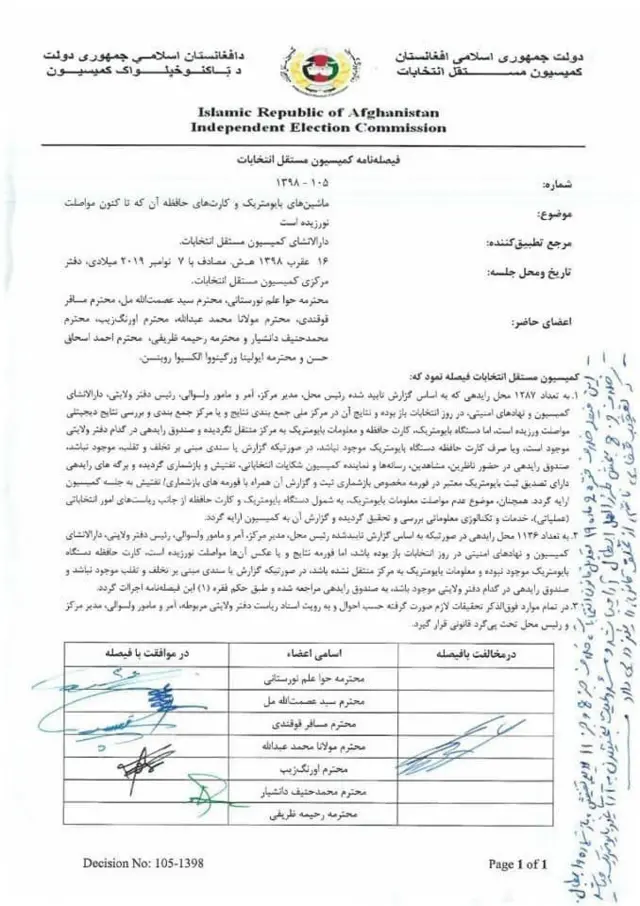 دولت جمهوری اسلامی افغانستان
کمیسیون مستقل انتخابات
دافغانستان اسلامي جمهوری دولت
د ټاکنو خپلواک کمیسیون
Islamic Republic of Afghanistan
Independent Election Commission
فیصله‌نامه کمیسیون مستقل انتخابات
شماره: ۱۰۵ - ۱۳۹۸
موضوع: ماشین‌های بایومتریک و کارت‌های حافظه آن که تا کنون مواصلت
نورزیده است
مرجع تطبیق‌کننده: دارالانشای کمیسیون مستقل انتخابات.
تاریخ ومحل جلسه: ۱۶ عقرب ۱۳۹۸ هـ.ش. مصادف با ۷ نوامبر ۲۰۱۹ میلادی، دفتر
مرکزی کمیسیون مستقل انتخابات.
اعضای حاضر: محترمه حوا علم نورستانی، محترم سید عصمت‌الله مل، محترم مسافر
قوقندی، محترم مولانا محمد عبدالله، محترم اورنگ‌زیب، محترم
محمدحنیف دانشیار و محترمه رحیمه ظریفی، محترم احمد اسحاق
حسن و محترمه ایولینا ورگینووا الکسیوا روبنسن.
کمیسیون مستقل انتخابات فیصله نمود که:
۱. به تعداد ۱۲۸۷ محل رایدهی که به اساس گزارش تایید شده رئیس محل، مدیر مرکز، آمر و مامور ولسوالی، رئیس دفتر ولایتی، دارالانشای
کمیسیون و نهادهای امنیتی، در روز انتخابات باز بوده و نتایج آن در مرکز ملی جمع بندی نتایج و یا مرکز جمع بندی و بررسی نتایج دیجیتلی
مواصلت ورزیده است، اما دستگاه بایومتریک، کارت حافظه و معلومات بایومتریک به مرکز منتقل نگردیده و صندوق رایدهی در گدام دفتر ولایتی
موجود است، ویا صرف کارت حافظه دستگاه بایومتریک موجود نباشد، درصورتیکه گزارش یا سندی مبنی بر تخلف و تقلب، موجود نباشد،
صندوق رایدهی در حضور ناظرین، مشاهدین، رسانه‌ها و نماینده کمیسیون شکایات انتخاباتی، تفتیش و بازشماری گردیده و برگه های رایدهی
دارای تصدیق ثبت بایومتریک معتبر در فورمه مخصوص بازشماری ثبت و گزارش آن همراه با فورمه های بازشماری/ تفتیش به جلسه کمیسیون
ارایه گردد. همچنان، موضوع عدم مواصلت معلومات بایومتریک، به شمول دستگاه بایومتریک و کارت حافظه از جانب ریاست‌های امور انتخاباتی
(عملیاتی)، خدمات و تکنالوژی معلوماتی بررسی و تحقیق گردیده و گزارش آن به کمیسیون ارایه گردد.
۲. به تعداد ۱۱۳۶ محل رایدهی در صورتیکه به اساس گزارش تاییدشده رئیس محل، مدیر مرکز، آمر و مامور ولسوالی، رئیس دفتر ولایتی، دارالانشای
کمیسیون و نهادهای امنیتی در روز انتخابات باز بوده باشد، اما فورمه نتایج و یا عکس آن‌ها مواصلت نورزیده است، کارت حافظه دستگاه
بایومتریک موجود نبوده و معلومات بایومتریک به مرکز منتقل نشده باشد، در صورتیکه گزارش یا سندی مبنی بر تخلف و تقلب موجود نباشد و
صندوق رایدهی در گدام دفتر ولایتی موجود باشد، به صندوق رایدهی مراجعه شده و طبق حکم فقره (۱) این فیصله‌نامه اجراات گردد.
۳. در تمام موارد فوق‌الذکر تحقیقات لازم صورت گرفته حسب احوال و به رویت اسناد ریاست دفتر ولایتی مربوطه، آمر و مامور ولسوالی، مدیر مرکز
و رئیس محل تحت پی‌گرد قانونی قرار گیرد.
درمخالفت بافیصله اسامی اعضاء در موافقت با فیصله
محترمه حوا علم نورستانی
محترم سید عصمت‌الله مل
محترم مسافر قوقندی
محترم مولانا محمد عبدالله
محترم اورنگ‌زیب
محترم محمدحنیف دانشیار
محترمه رحیمه ظریفی
Decision No: 105-1398
Page 1 of 1